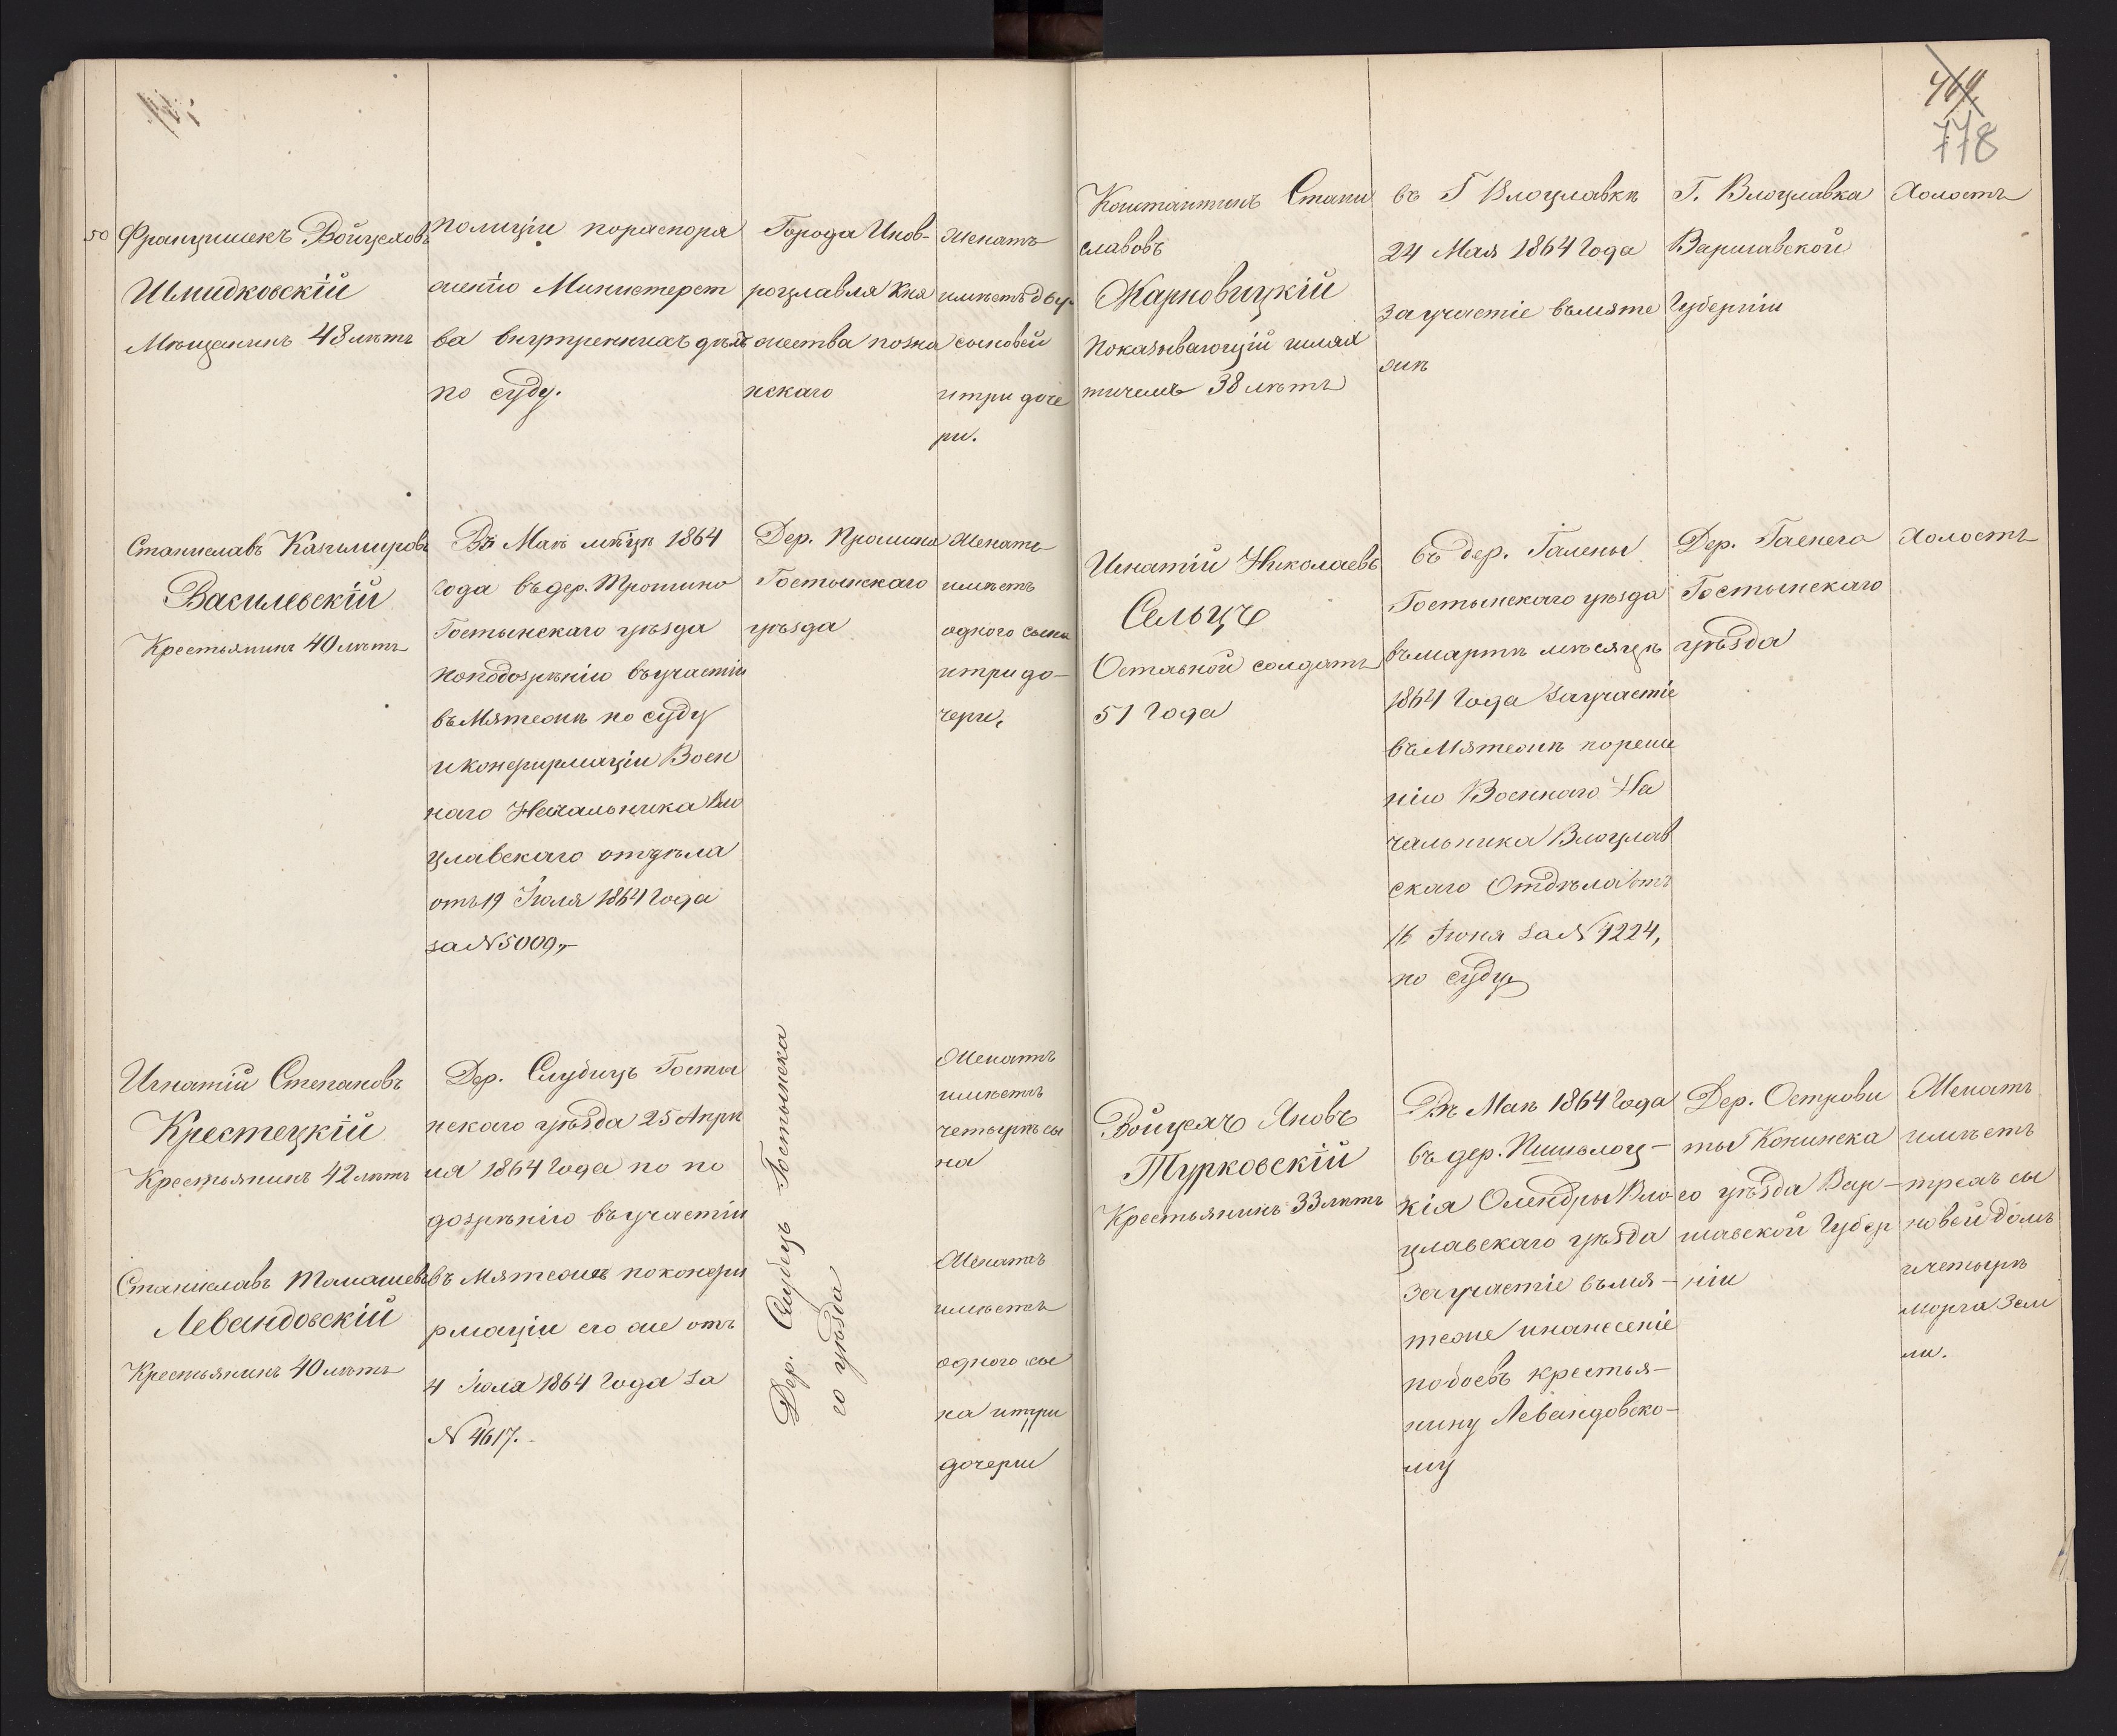 50 Францишекъ Войцеховъ
Шмидковскій
Мѣщанинъ 48 лѣтъ
полиціи пораспоря
женію Министерст
ва внутреннихъ дѣлъ
по суду.
Города Инов-
роцлавля Кня
жества позна
нскаго
Женатъ
имѣетъ двух
сыновей
итри доче
ри.
Станиславъ Казимировъ
Василевскій
Крестьянинъ 40 лѣтъ
Въ Маѣ мѣсцѣ 1864
года въ дер. Трошино
Гостынскаго уѣзда
поподозрѣнію въучастіи
въ Мятежѣ по суду
иконфирмаціи Воен
наго Начальника Вло
цлавскаго отдѣла
отъ 19 Іюля 1864 года
за N 5009,-
Дер. Трошина
Гостынскаго
уѣзда
Женатъ
имѣетъ
одного сына
итри до-
чери,
Игнатій Степановъ
Крестецкій
Крестьянинъ 42 лѣтъ
Станиславъ Томашевъ
Левандовскій
Крестьянинъ 40 лѣтъ
Дер. Слубицъ Госты
нскаго уѣзда 25 Апрѣ
ля 1864 года по по
дозрѣнію въучастіи
въ Мятежѣ поконфи
рмаціи его же отъ
4 Іюля 1864 года за
N 4617.
Дер. Слубецъ Гостынска
го уѣзда
Женатъ
имѣетъ
четырѣ сы
на
Женатъ
имѣетъ
одного сы
на итри
дочери
469
778
Константинъ Стани
славовъ
Жарновицкій
показывающій шлях
тичемъ 38 лѣтъ
въ Г Влоцлавкѣ
24 Мая 1864 года
за участіе въмяте
жѣ
Г. Влоцлавка
Варшавской
Губерніи
Холостъ
Игнатій Николаевъ
Сельцъ
Отставной солдатъ
51 года
въ дер. Галены
Гостынскаго уѣзда
въмартѣ мѣсяцѣ
1864 года заучастіе
въ Мятежѣ пореше
нію Военнаго На
чальника Влоцлав
скаго Отдѣла отъ
16 Іюня за N 4224,
по суду
Дер.
Гостынскаго
уѣзда
Холостъ
Войцехъ Яновъ
Турковскій
Крестьянинъ 33 лѣтъ
Въ Маѣ 1864 года
въ дер.
кія Олендры Вло-
цлавскаго уѣзда
За участіе въмя-
теже инанесеніе
побоевъ крестья-
нину Левандовско-
му
Дер. Острови
ты Конинска
го уѣзда Вар-
шавской Губер
ніи
Женатъ
имѣетъ
трехъ сы
новей домъ
ичетырѣ
морга Зем
ли.